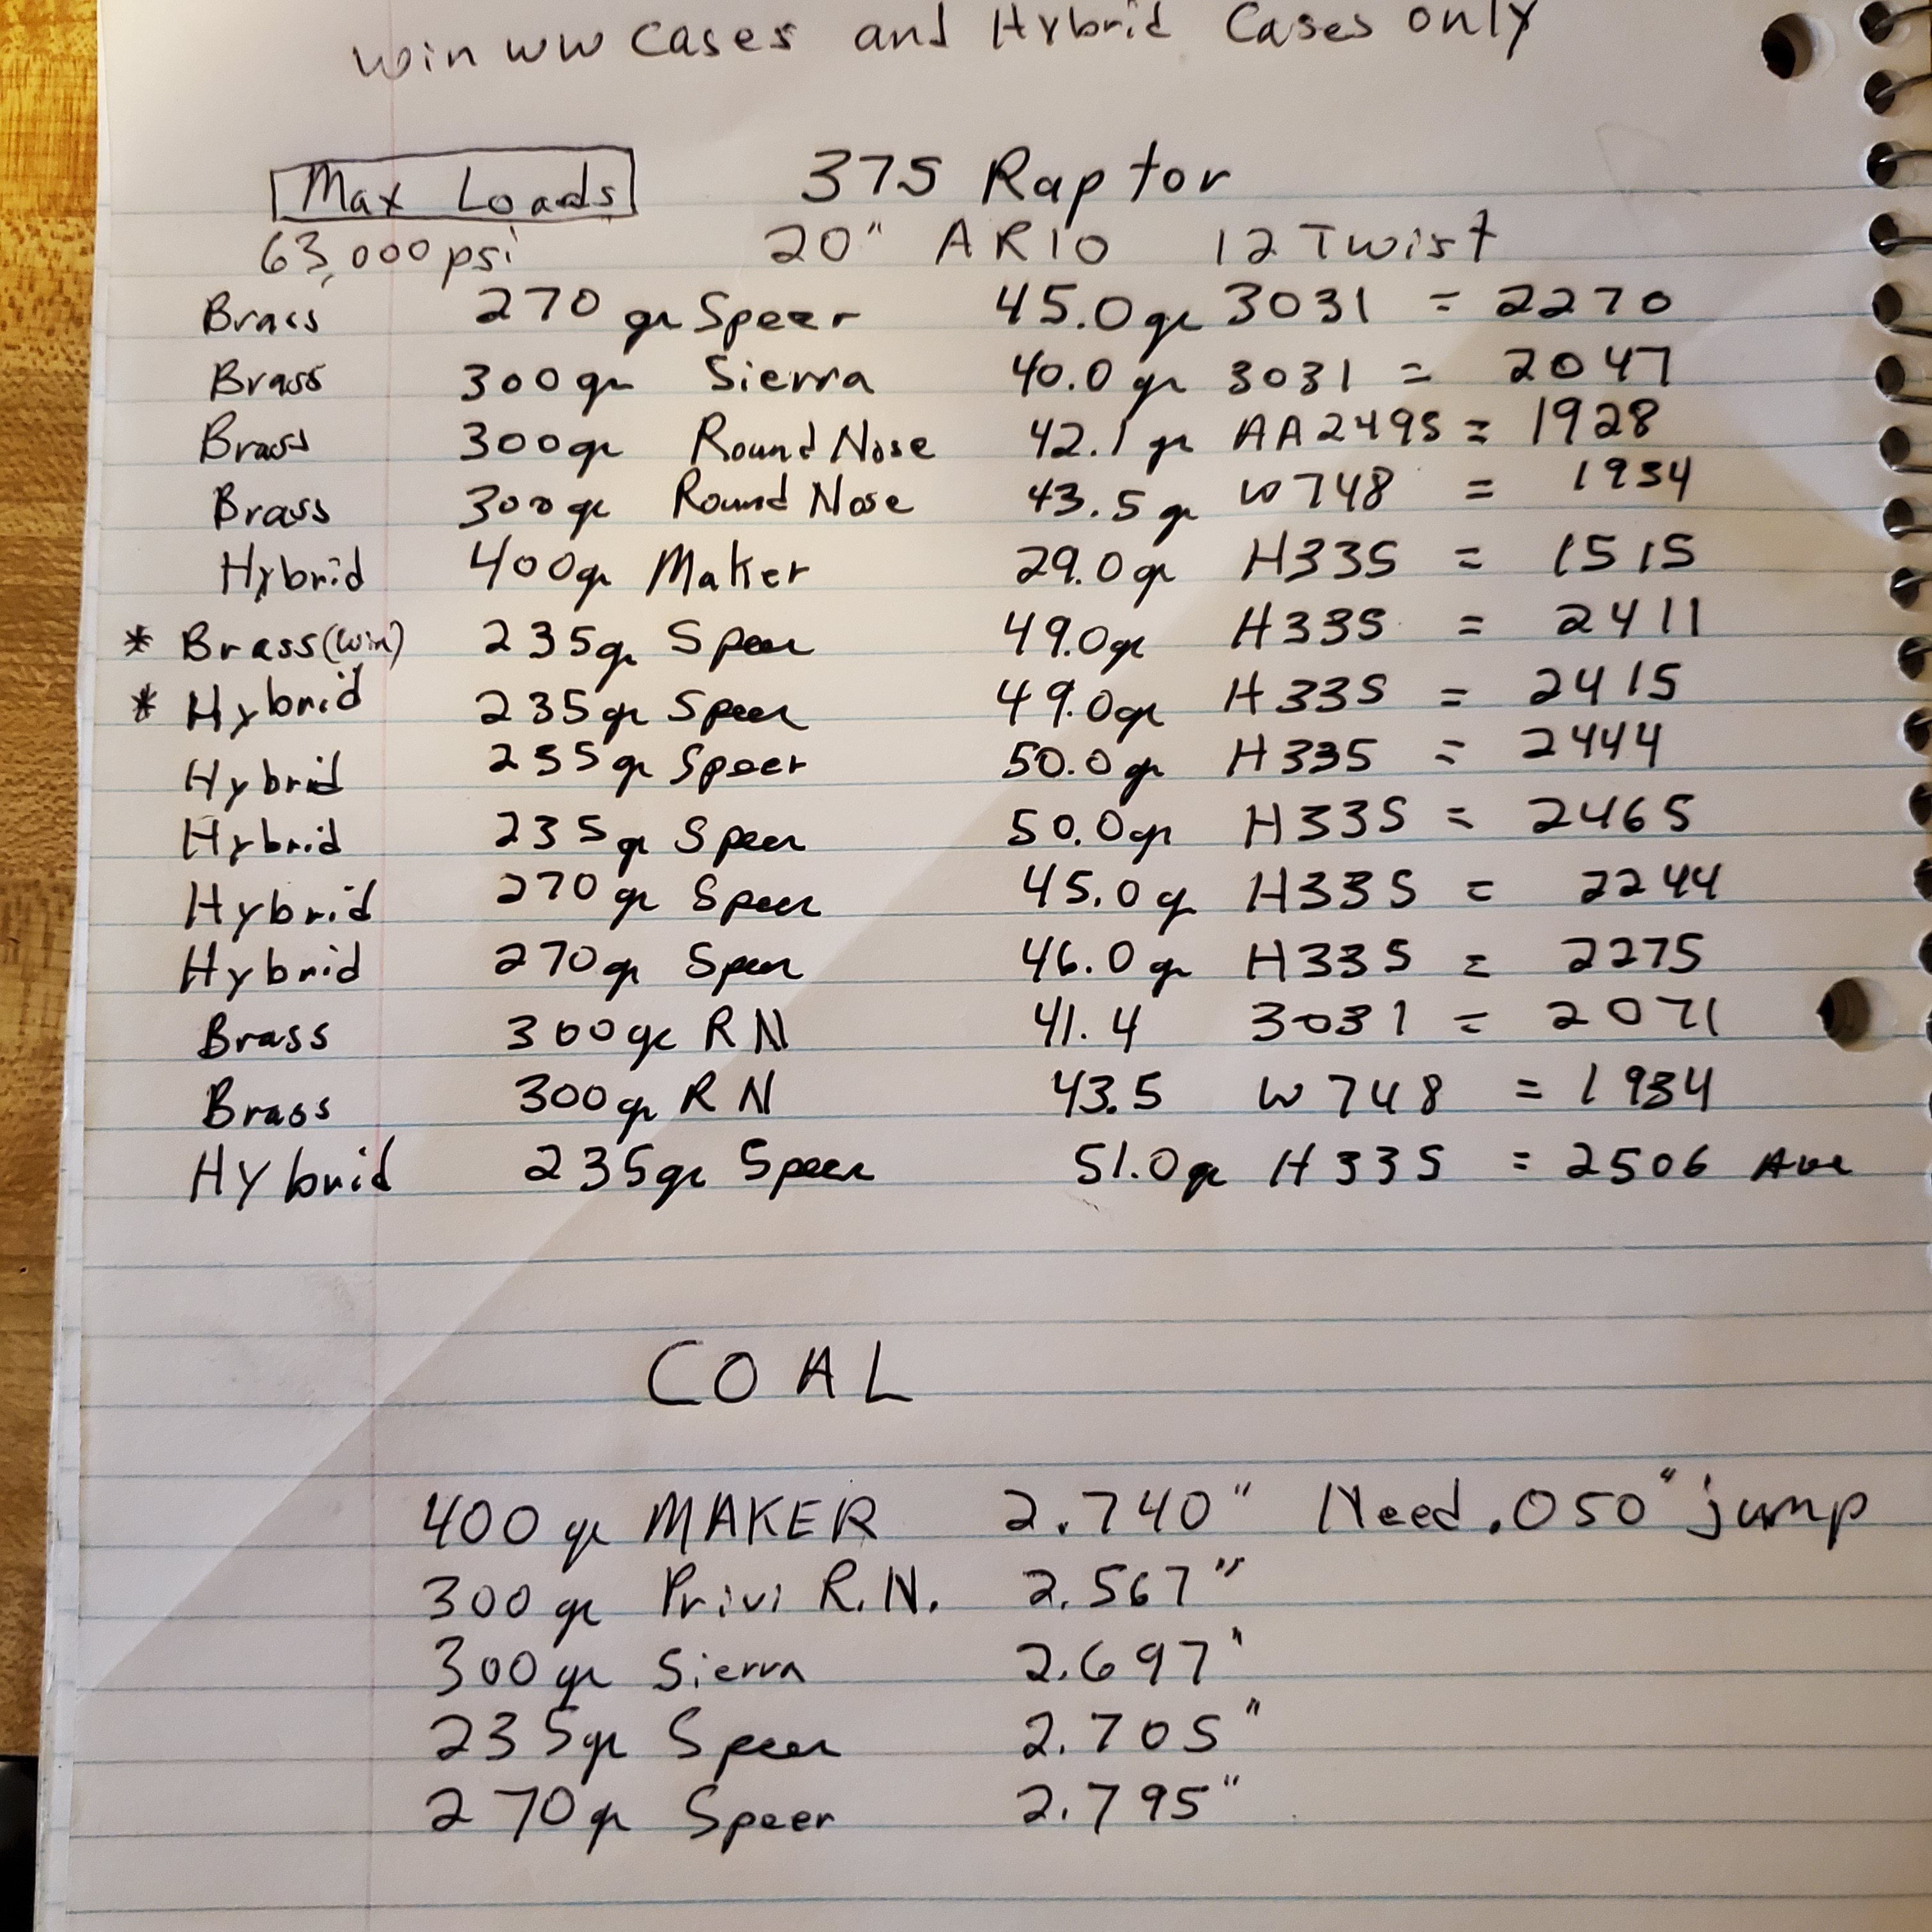 Win WW Cases and Hybrid Cases only
Max Loads 375 Raptor
63,000 psi 20" AR10 12 Twist
Brass 270 gr Speer 45.0gr 3031 = 2270
Brass 300gr Sierra 40.0 gr 3031 = 2047
Brass 300gr Round Nose 42.1 gr AA2495 = 1928
Brass 300gr Round Nose 43.5 gr W748 = 1934
Hybrid 400gr Maker 29.0gr H335 = 1515
* Brass (Win) 235gr Speer 49.0gr H335 = 2411
* Hybrid 235gr Speer 49.0gr H335 = 2415
Hybrid 235gr Speer 50.0gr H335 = 2444
Hybrid 235gr Speer 50.0gr H335 = 2465
Hybrid 270gr Speer 45.0gr H335 = 2244
Hybrid 270gr Speer 46.0gr H335 = 2275
Brass 300gr RN 41.4 3031 = 2071
Brass 300gr RN 43.5 W748 = 1934
Hybrid 235gr Speer 51.0gr H335 = 2506 Ave
COAL
400 gr MAKER 2.740" Need .050" jump
300 gr Privi R.N. 2.567"
300 gr Sierra 2.697"
235gr Speer 2.705"
270gr Speer 2.795"